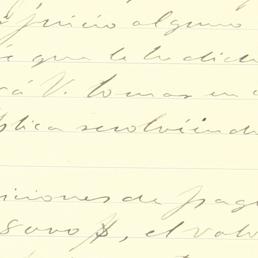 juicio alguno
que le he dich
rá V. tomar en c
plica resolviendo
iciones de pag
$, el valo